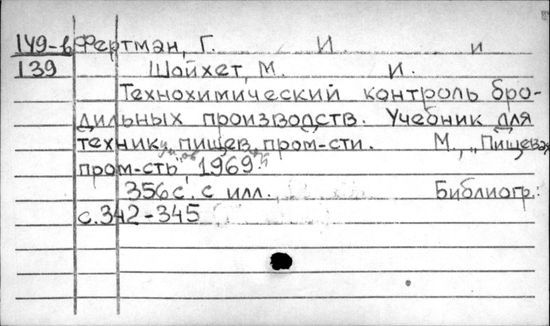 149-в Фертман, Г. И. и
139 Шойхет, М. И.
Технохимический контроль бро-
дильных производств. Учебник для
техникумов пищев. пром-сти. М., "Пищевая
пром-сть", 1969.
356 с. с илл. Библиогр.:
с. 342-345